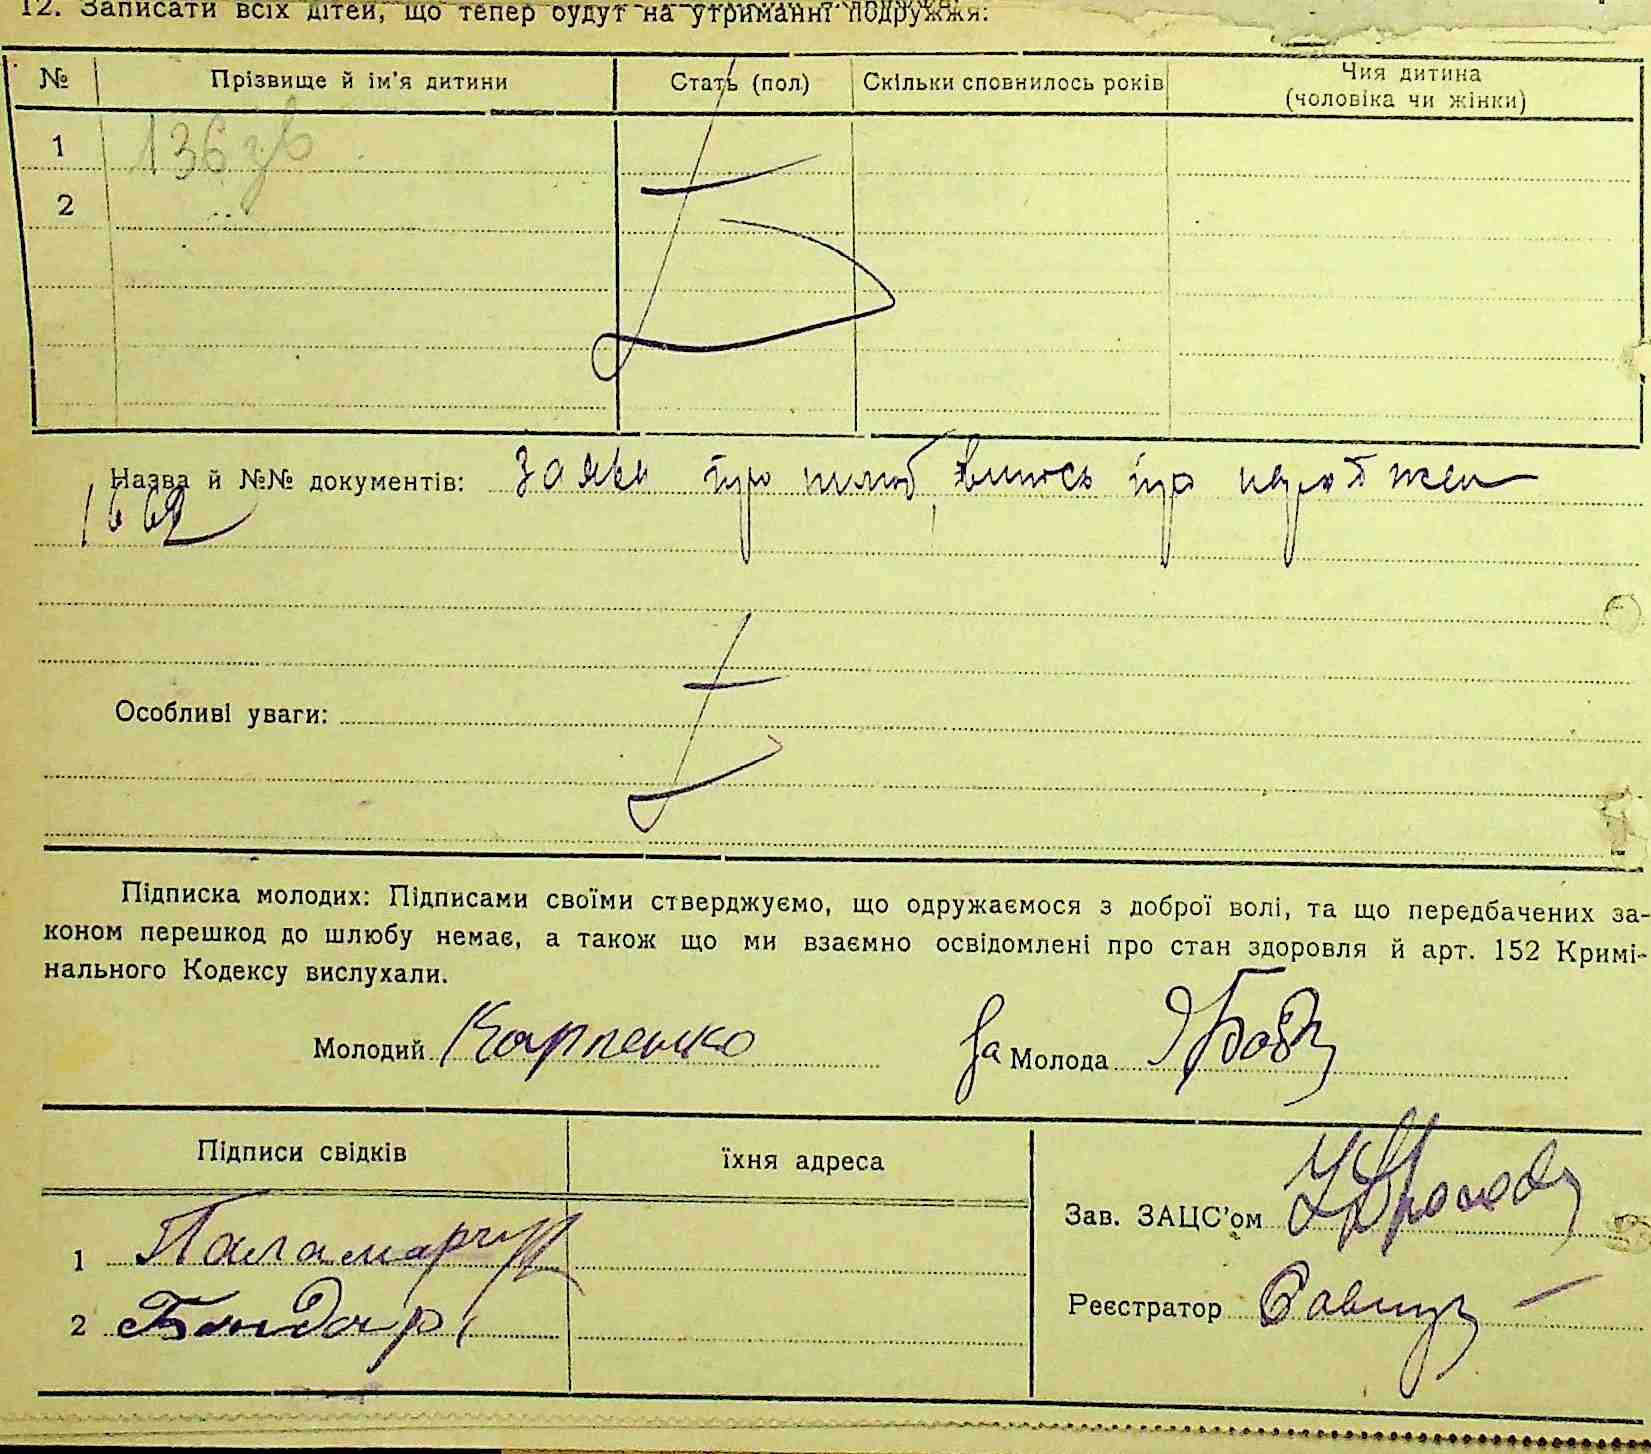 12. Записати всіх дітей, що тепер будуть на утриманні подружжя:
№ Прізвище й ім'я дитини Стать (пол) Скільки сповнилось років Чия дитина (чоловіка чи жінки)
1 136
2
Назва й №№ документів: заява про шлюб випись про народжен
1662
Особливі уваги:
Підписка молодих: Підписами своїми стверджуємо, що одружаємося з доброї волі, та що передбачених за-
коном перешкод до шлюбу немає, а також що ми взаємно освідомлені про стан здоровля й арт. 152 Кримі-
нального Кодексу вислухали.
Молодий Карпенко За Молода
Підписи свідків їхня адреса
Зав. ЗАЦС'ом
1 Паламарчук
Реєстратор
2 Бондар